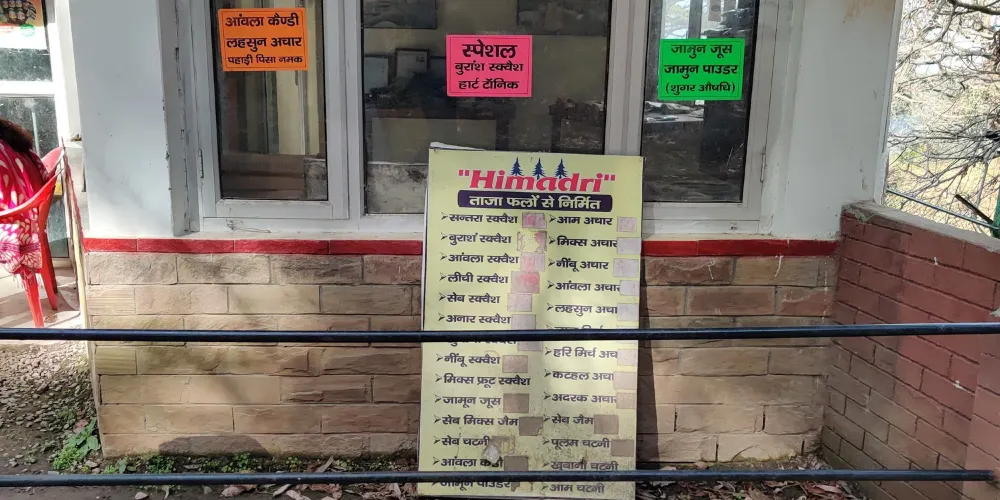 आंवला कैण्डी
लहसुन अचार
पहाड़ी पिसा नमक
स्पेशल
बुरांश स्क्वैश
हार्ट टॉनिक
जामुन जूस
जामुन पाउडर
(शुगर औषधि)
"Himadri"
ताजा फलों से निर्मित
सन्तरा स्क्वैश
बुरांश स्क्वैश
आंवला स्क्वैश
लीची स्क्वैश
सेब स्क्वैश
अनार स्क्वैश
नींबू स्क्वैश
मिक्स फ्रूट स्क्वैश
जामून जूस
सेब मिक्स जैम
सेब चटनी
आंवला कैंडी
जामुन पाउडर
आम अचार
मिक्स अचार
नींबू अचार
आंवला अचार
लहसुन अचा
हरि मिर्च अच
कटहल अचा
अदरक अचार
सेब जैम
पूलम चटनी
खुबानी चटनी
आम चटनी